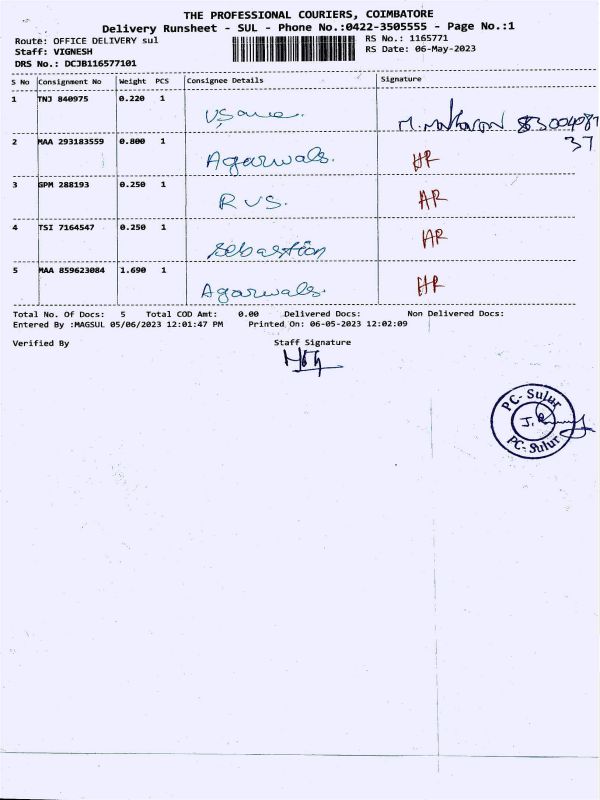 THE PROFESSIONAL COURIERS, COIMBATORE
Delivery Runsheet - SUL - Phone No.:0422-3505555 - Page No.:1
Route: OFFICE DELIVERY sul
RS No.: 1165771
Staff: VIGNESH
RS Date: 06-May-2023
DRS No.: DCJB116577101
S No Consignment No Weight PCS Consignee Details Signature
1 TNJ 840975 0.220 1
2 MAA 293183559 0.800 1 Agarwals. HR
3 GPM 288193 0.250 1 RVS. HR
4 TSI 7164547 0.250 1 Sebastion HR
5 MAA 859623084 1.690 1 Agarwals. HR
Total No. Of Docs: 5 Total COD Amt: 0.00 Delivered Docs: Non Delivered Docs:
Entered By :MAGSUL 05/06/2023 12:01:47 PM Printed On: 06-05-2023 12:02:09
Verified By Staff Signature
PC- Sulur
PC- Sulur